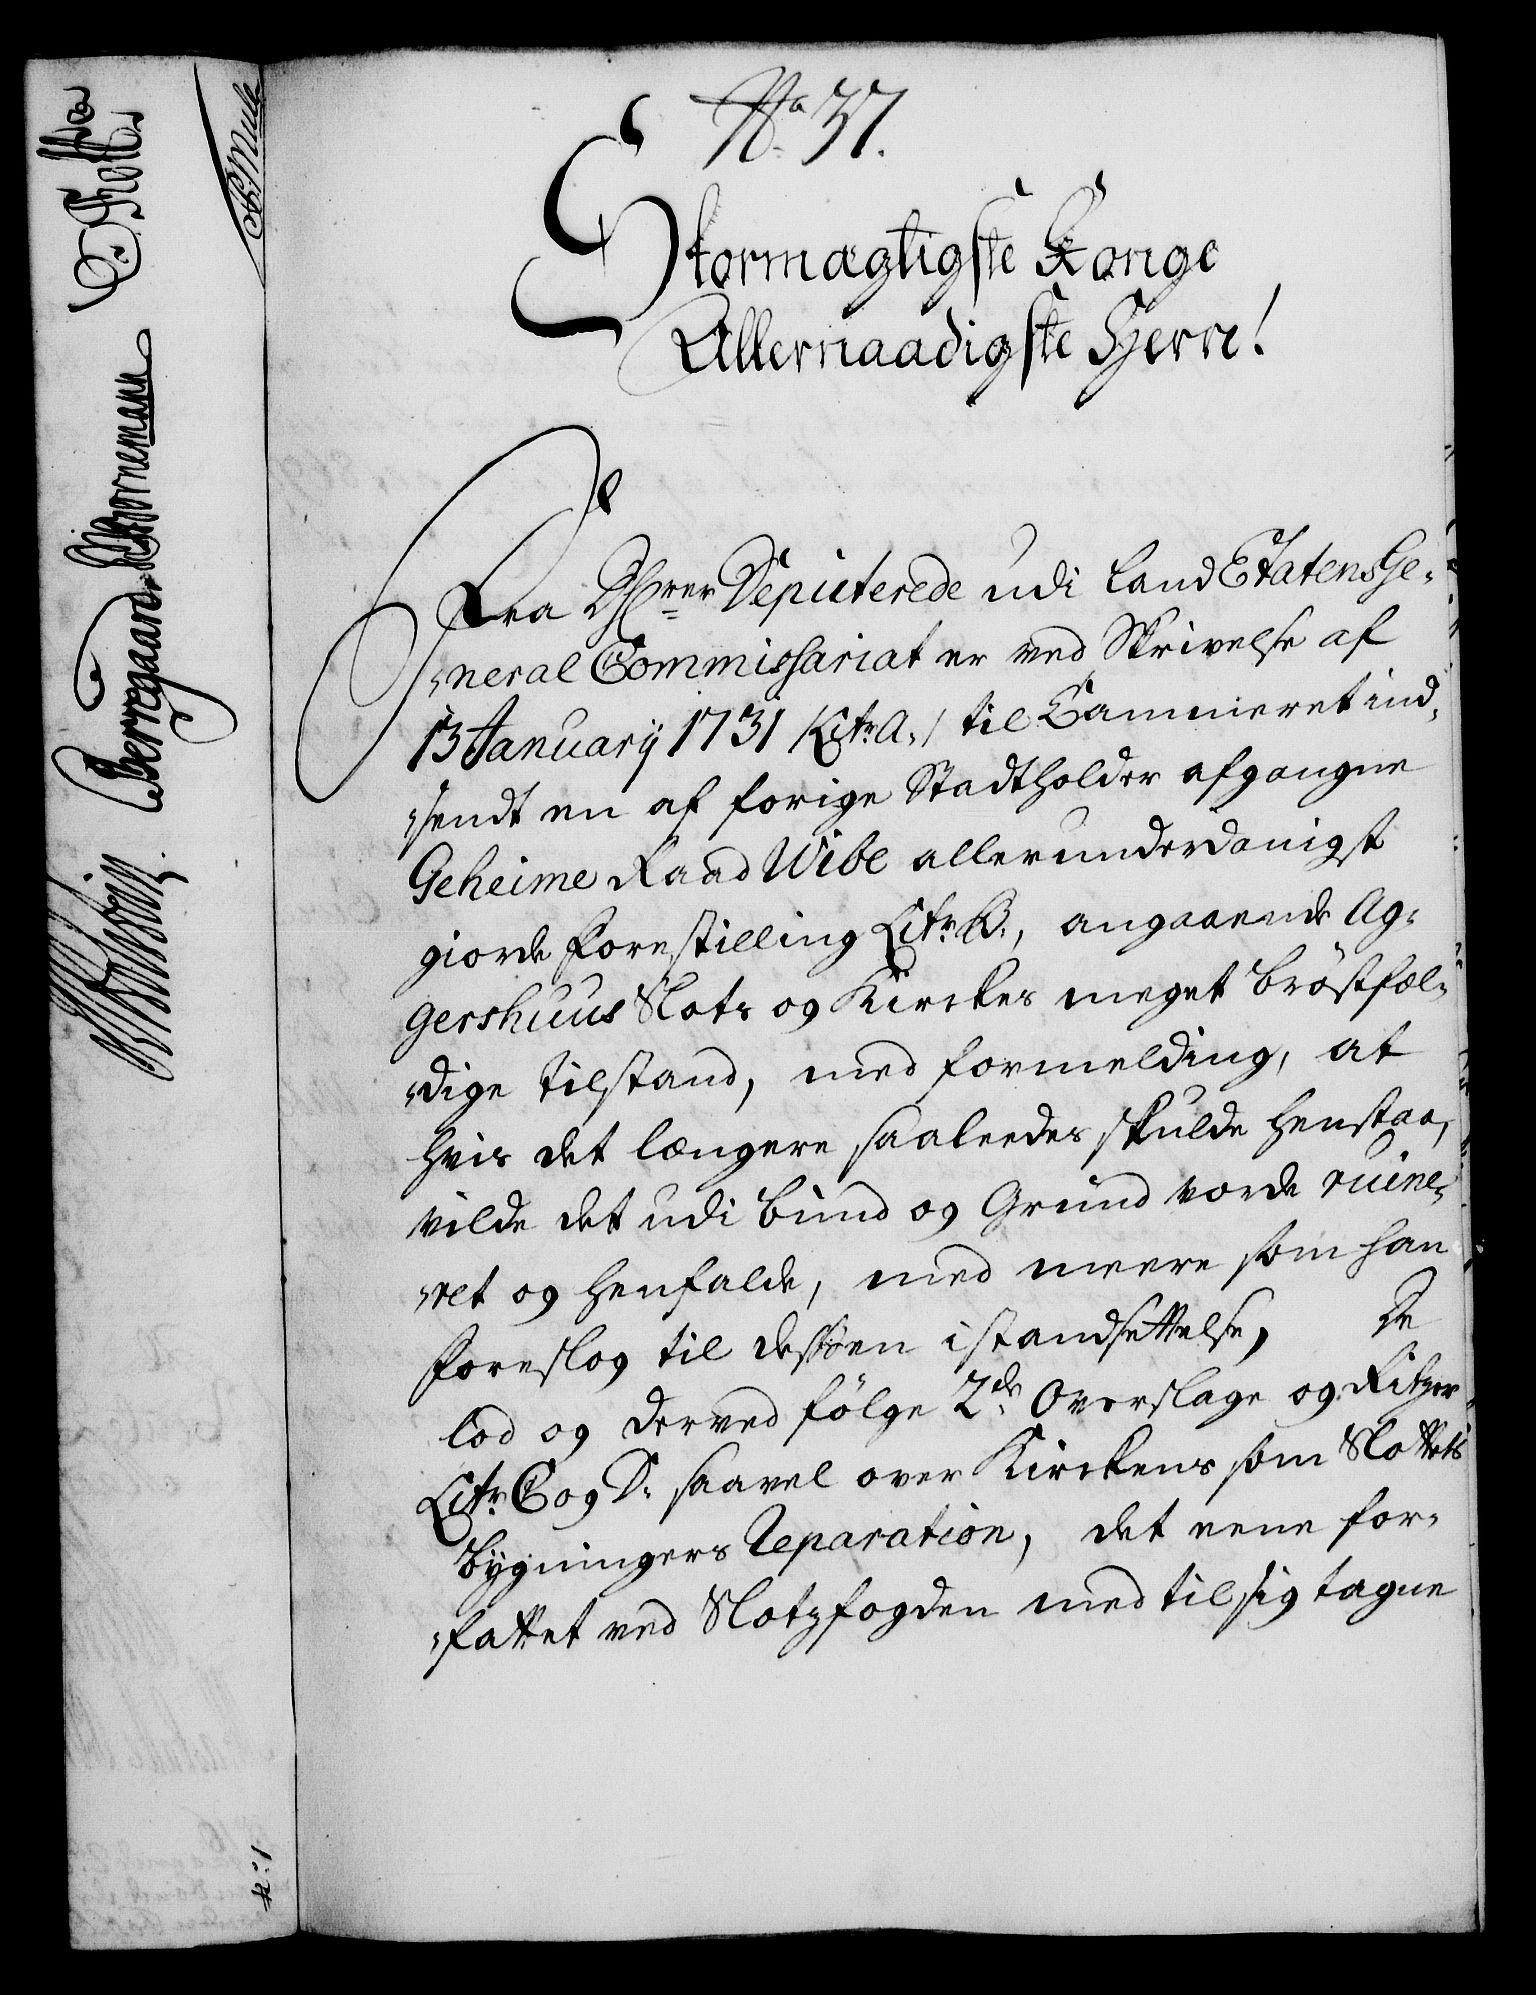 No 37.
Stormægtigste Konge
Allernaadigste Herre!
Fra DHrer Deputerede udi Land Etatens Ge-
neral Commissariat er ved Skrivelse af
13 Januarij 1731 /Litr. A./ til Cammeret ind-
sendt en af forige Stadtholder afgangne
Geheime Raad Wibe allerunderdanigst
giorde Forestilling Litr. B., angaaende Ag-
gershuus Slots og Kirckes meget brøstfæl-
dige tilstand, med formelding, at
hvis det længere saaleedes skulde henstaa,
vilde det udi bund og Grund vorde ruine-
ret og henfalde, med meere som han
foreslog til dessen istandsettelse, De
lod og derved følge 2de Overslage og Ritzer
Litr. C og D. saavel over Kirckens som Slottets
bygningers Reparation, det eene for-
fattet ved Slotzfogden med til sig tagne